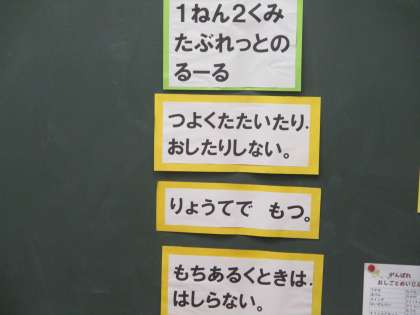 1ねん2くみ
たぶれっとの
るーる
つよくたたいたり.
おしたりしない。
りょうてで もつ。
もちあるくときは.
はしらない。
がんばれ